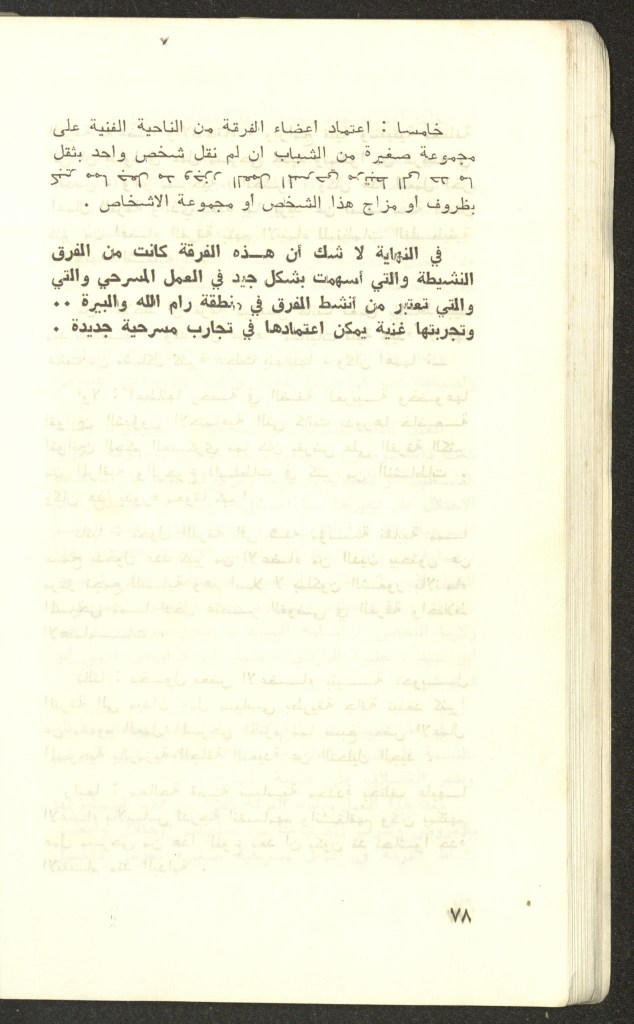 خامسا : اعتماد اعضاء الفرقة من الناحية الفنية على
مجموعة صغيرة من الشباب ان لم نقل شخص واحد بثقل
كبير مما جعل مد وجزر العمل المسرحي مرتبط الى حد ما
بظروف أو مزاج هذا الشخص أو مجموعة الاشخاص .
في النهاية لا شك أن هــذه الفرقة كانت من المفرق
النشيطة والتي أسهمت بشكل جيد في العمل المسرحي والتي
والتي تعتبر من أنشط المفرق في منطقة رام الله والبيرة ..
وتجربتها غنية يمكن اعتمادها في تجارب مسرحية جديدة .
٧٨